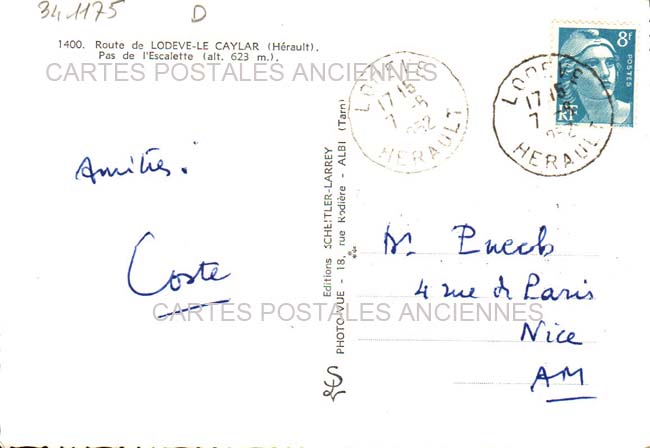 341175 D
1400. Route de LODEVE-LE CAYLAR (Hérault).
Pas de l'Escalette (alt. 623 m.).
CARTES POSTALES ANCIENNES
LODEVE
17 15
7 -8
952
HERAULT
LODEVE
17 15
7 -8
952
HERAULT
8F
POSTES
RF
Amitiés.
Coste
Editions SCHEITLER-LARREY
PHOTO-VUE - 18, rue Rodière - ALBI (Tarn)
Mr
4 rue de Paris
Nice
AM
CARTES POSTALES ANCIENNES